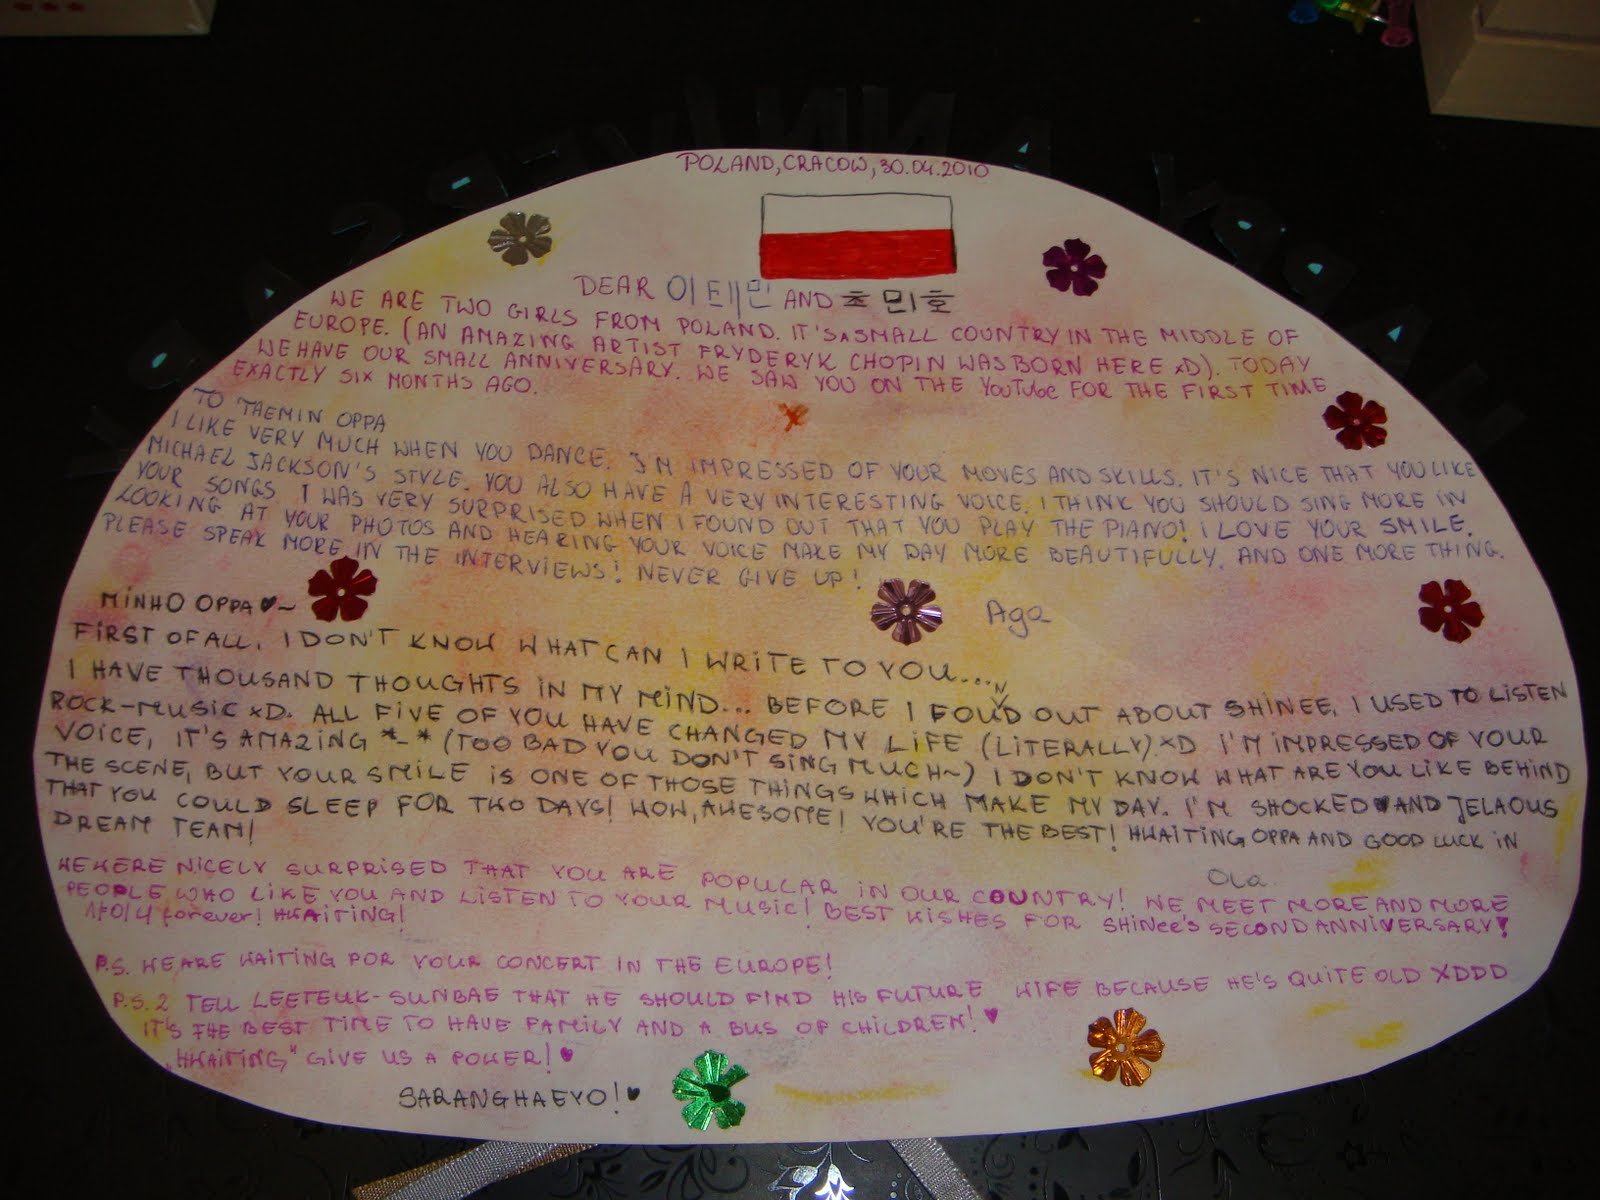 POLAND, CRACOW, 30.04.2010
DEAR 이태민 AND 초민호
WE ARE TWO GIRLS FROM POLAND. IT'S A SMALL COUNTRY IN THE MIDDLE OF
EUROPE. (AN AMAZING ARTIST FRYDERYK CHOPIN WAS BORN HERE xD). TODAY
WE HAVE OUR SMALL ANNIVERSARY. WE SAW YOU ON THE YouTube FOR THE FIRST TIME
EXACTLY SIX MONTHS AGO.
TO TAEMIN OPPA
I LIKE VERY MUCH WHEN YOU DANCE. I'M IMPRESSED OF YOUR MOVES AND SKILLS. IT'S NICE THAT YOU LIKE
MICHAEL JACKSON'S STYLE. YOU ALSO HAVE A VERY INTERESTING VOICE. I THINK YOU SHOULD SING MORE IN
YOUR SONGS. I WAS VERY SURPRISED WHEN I FOUND OUT THAT YOU PLAY THE PIANO! I LOVE YOUR SMILE.
LOOKING AT YOUR PHOTOS AND HEARING YOUR VOICE MAKE MY DAY MORE BEAUTIFULLY. AND ONE MORE THING.
PLEASE SPEAK MORE IN THE INTERVIEWS! NEVER GIVE UP!
Aga
MINHO OPPA ♥~
FIRST OF ALL, I DON'T KNOW WHAT CAN I WRITE TO YOU...
I HAVE THOUSAND THOUGHTS IN MY MIND... BEFORE I FOUND OUT ABOUT SHINEE, I USED TO LISTEN
ROCK-MUSIC xD. ALL FIVE OF YOU HAVE CHANGED MY LIFE (LITERALLY) xD I'M IMPRESSED OF YOUR
VOICE, IT'S AMAZING *-* (TOO BAD YOU DON'T SING MUCH~) I DON'T KNOW WHAT ARE YOU LIKE BEHIND
THE SCENE, BUT YOUR SMILE IS ONE OF THOSE THINGS WHICH MAKE MY DAY. I'M SHOCKED AND JELAOUS
THAT YOU COULD SLEEP FOR TWO DAYS! WOW, AWESOME! YOU'RE THE BEST! HWAITING OPPA AND GOOD LUCK IN
DREAM TEAM!
Ola
WE WERE NICELY SURPRISED THAT YOU ARE POPULAR IN OUR COUNTRY! WE MEET MORE AND MORE
PEOPLE WHO LIKE YOU AND LISTEN TO YOUR MUSIC! BEST WISHES FOR SHINee's SECOND ANNIVERSARY!
샤이니 forever! HWAITING!
P.S. WE ARE WAITING FOR YOUR CONCERT IN THE EUROPE!
P.S. 2 TELL LEETEUK-SUNBAE THAT HE SHOULD FIND HIS FUTURE WIFE BECAUSE HE'S QUITE OLD XDDD
IT'S THE BEST TIME TO HAVE FAMILY AND A BUS OF CHILDREN! ♥
„HWAITING" GIVE US A POWER! ♥
SARANGHAEYO! ♥